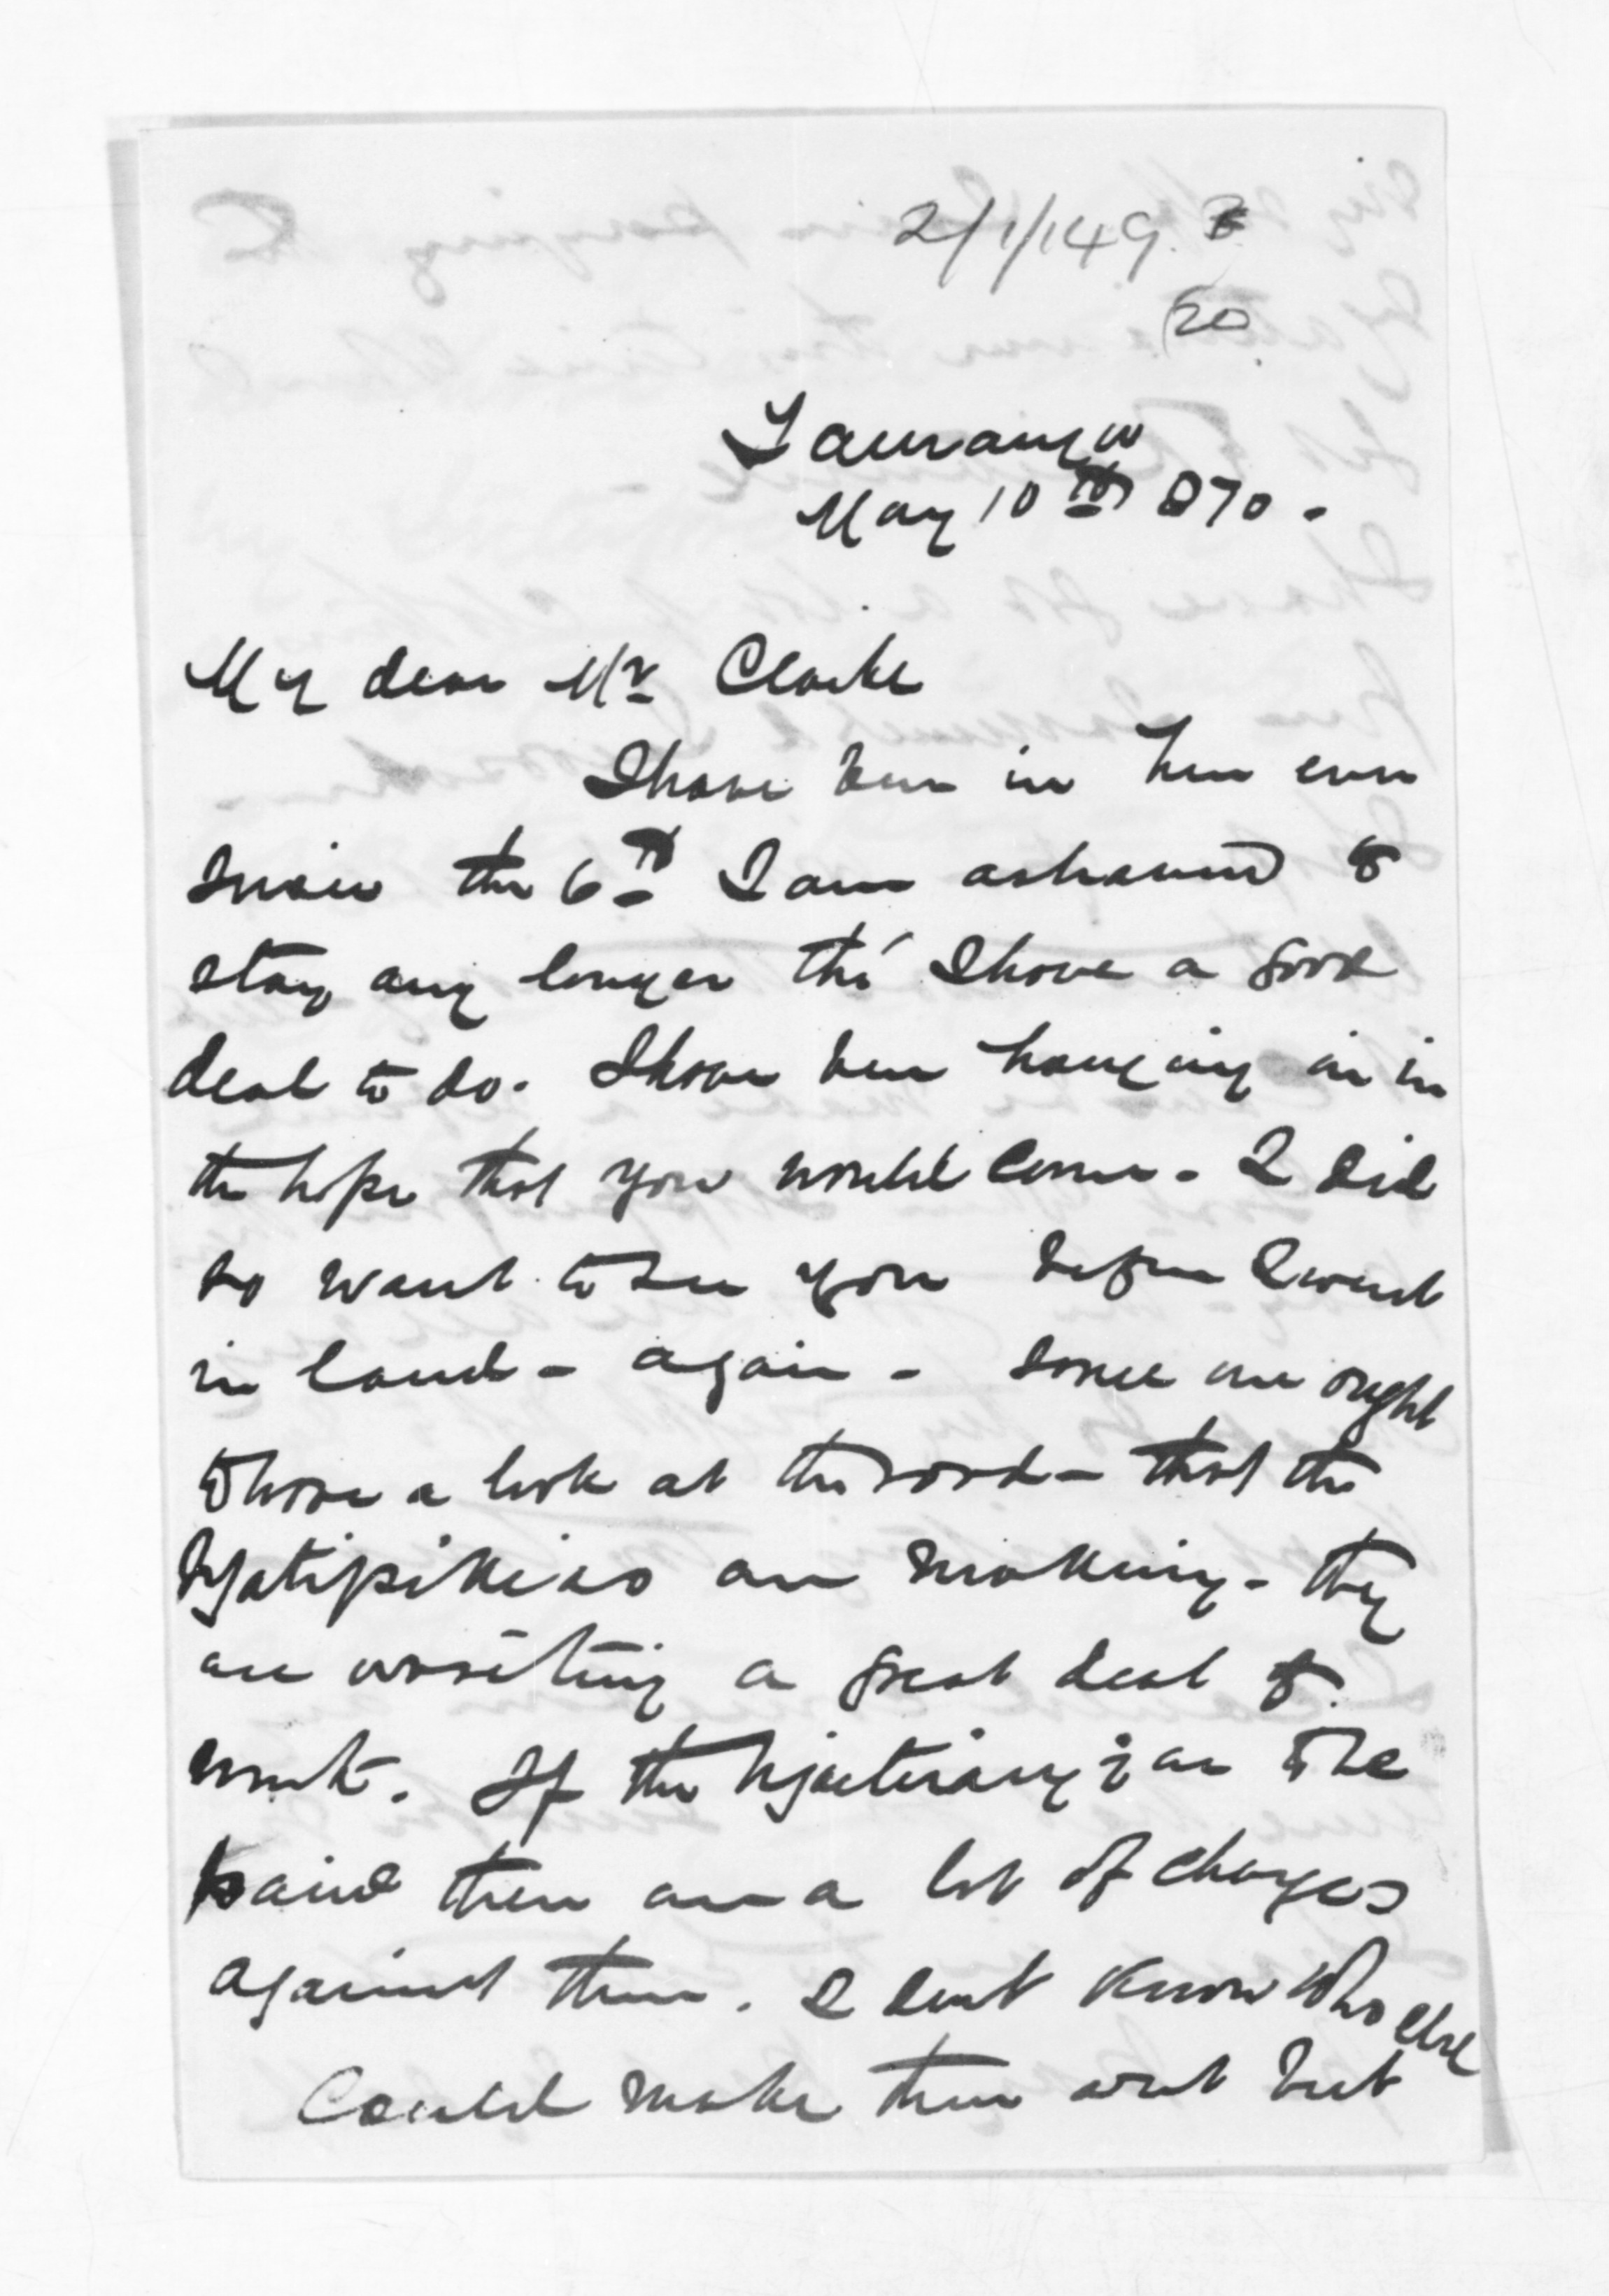 2/1/149.
20
Tauranga
May 10th 870.
My dear Mr Clarke
I have been in here ever
since the 6th I am ashamed to
stay any longer tho' I have a good
deal to do. I have been hanging on in
the hope that you would come - I did
so want to see you before I went
in land - again - some one ought
to have a look at the road - that the
Ngatipikiao are making - they
are wasting a great deal of
work. If the Ngaiterangi are to be
paid there are a lot of charges
against them. I dont know who else
could make them out but